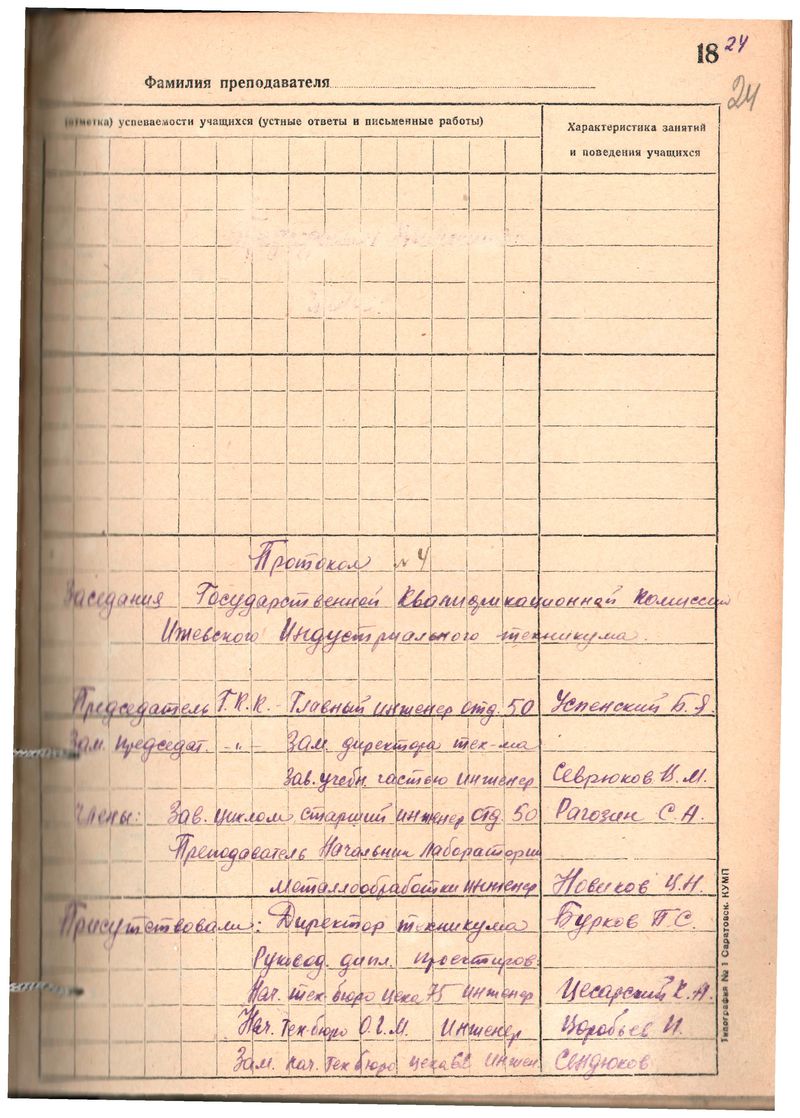 18 24
24
Фамилия преподавателя
(отметка) успеваемости учащихся (устные ответы и письменные работы)
Характеристика занятий
и поведения учащихся
Протокол № 4
Заседания Государственной Квалификационной Комиссии
Ижевского Индустриального техникума.
Председатель Г.К.К. - Главный инженер отд. 50 Успенский Б.Я.
Зам. председат. -„- Зам. директора тех-ма
Зав. учебн. частью инженер Севрюков В.М.
Члены: Зав. циклом старший инженер отд. 50 Рагозин С.А.
Преподаватель Начальник Лаборатории
металлообработки инженер Новиков И.Н.
Присутствовали: Директор техникума Бурков П.С.
Руковод. дипл. проектиров.
Нач. тех-бюро цеха 75 инженер Цесарский К.А.
Нач. Тех-бюро О.Г.М. Инженер
Зам. нач. Тех бюро цеха Инжен. Сендюков
Типография № 1 Саратовск. КУМП